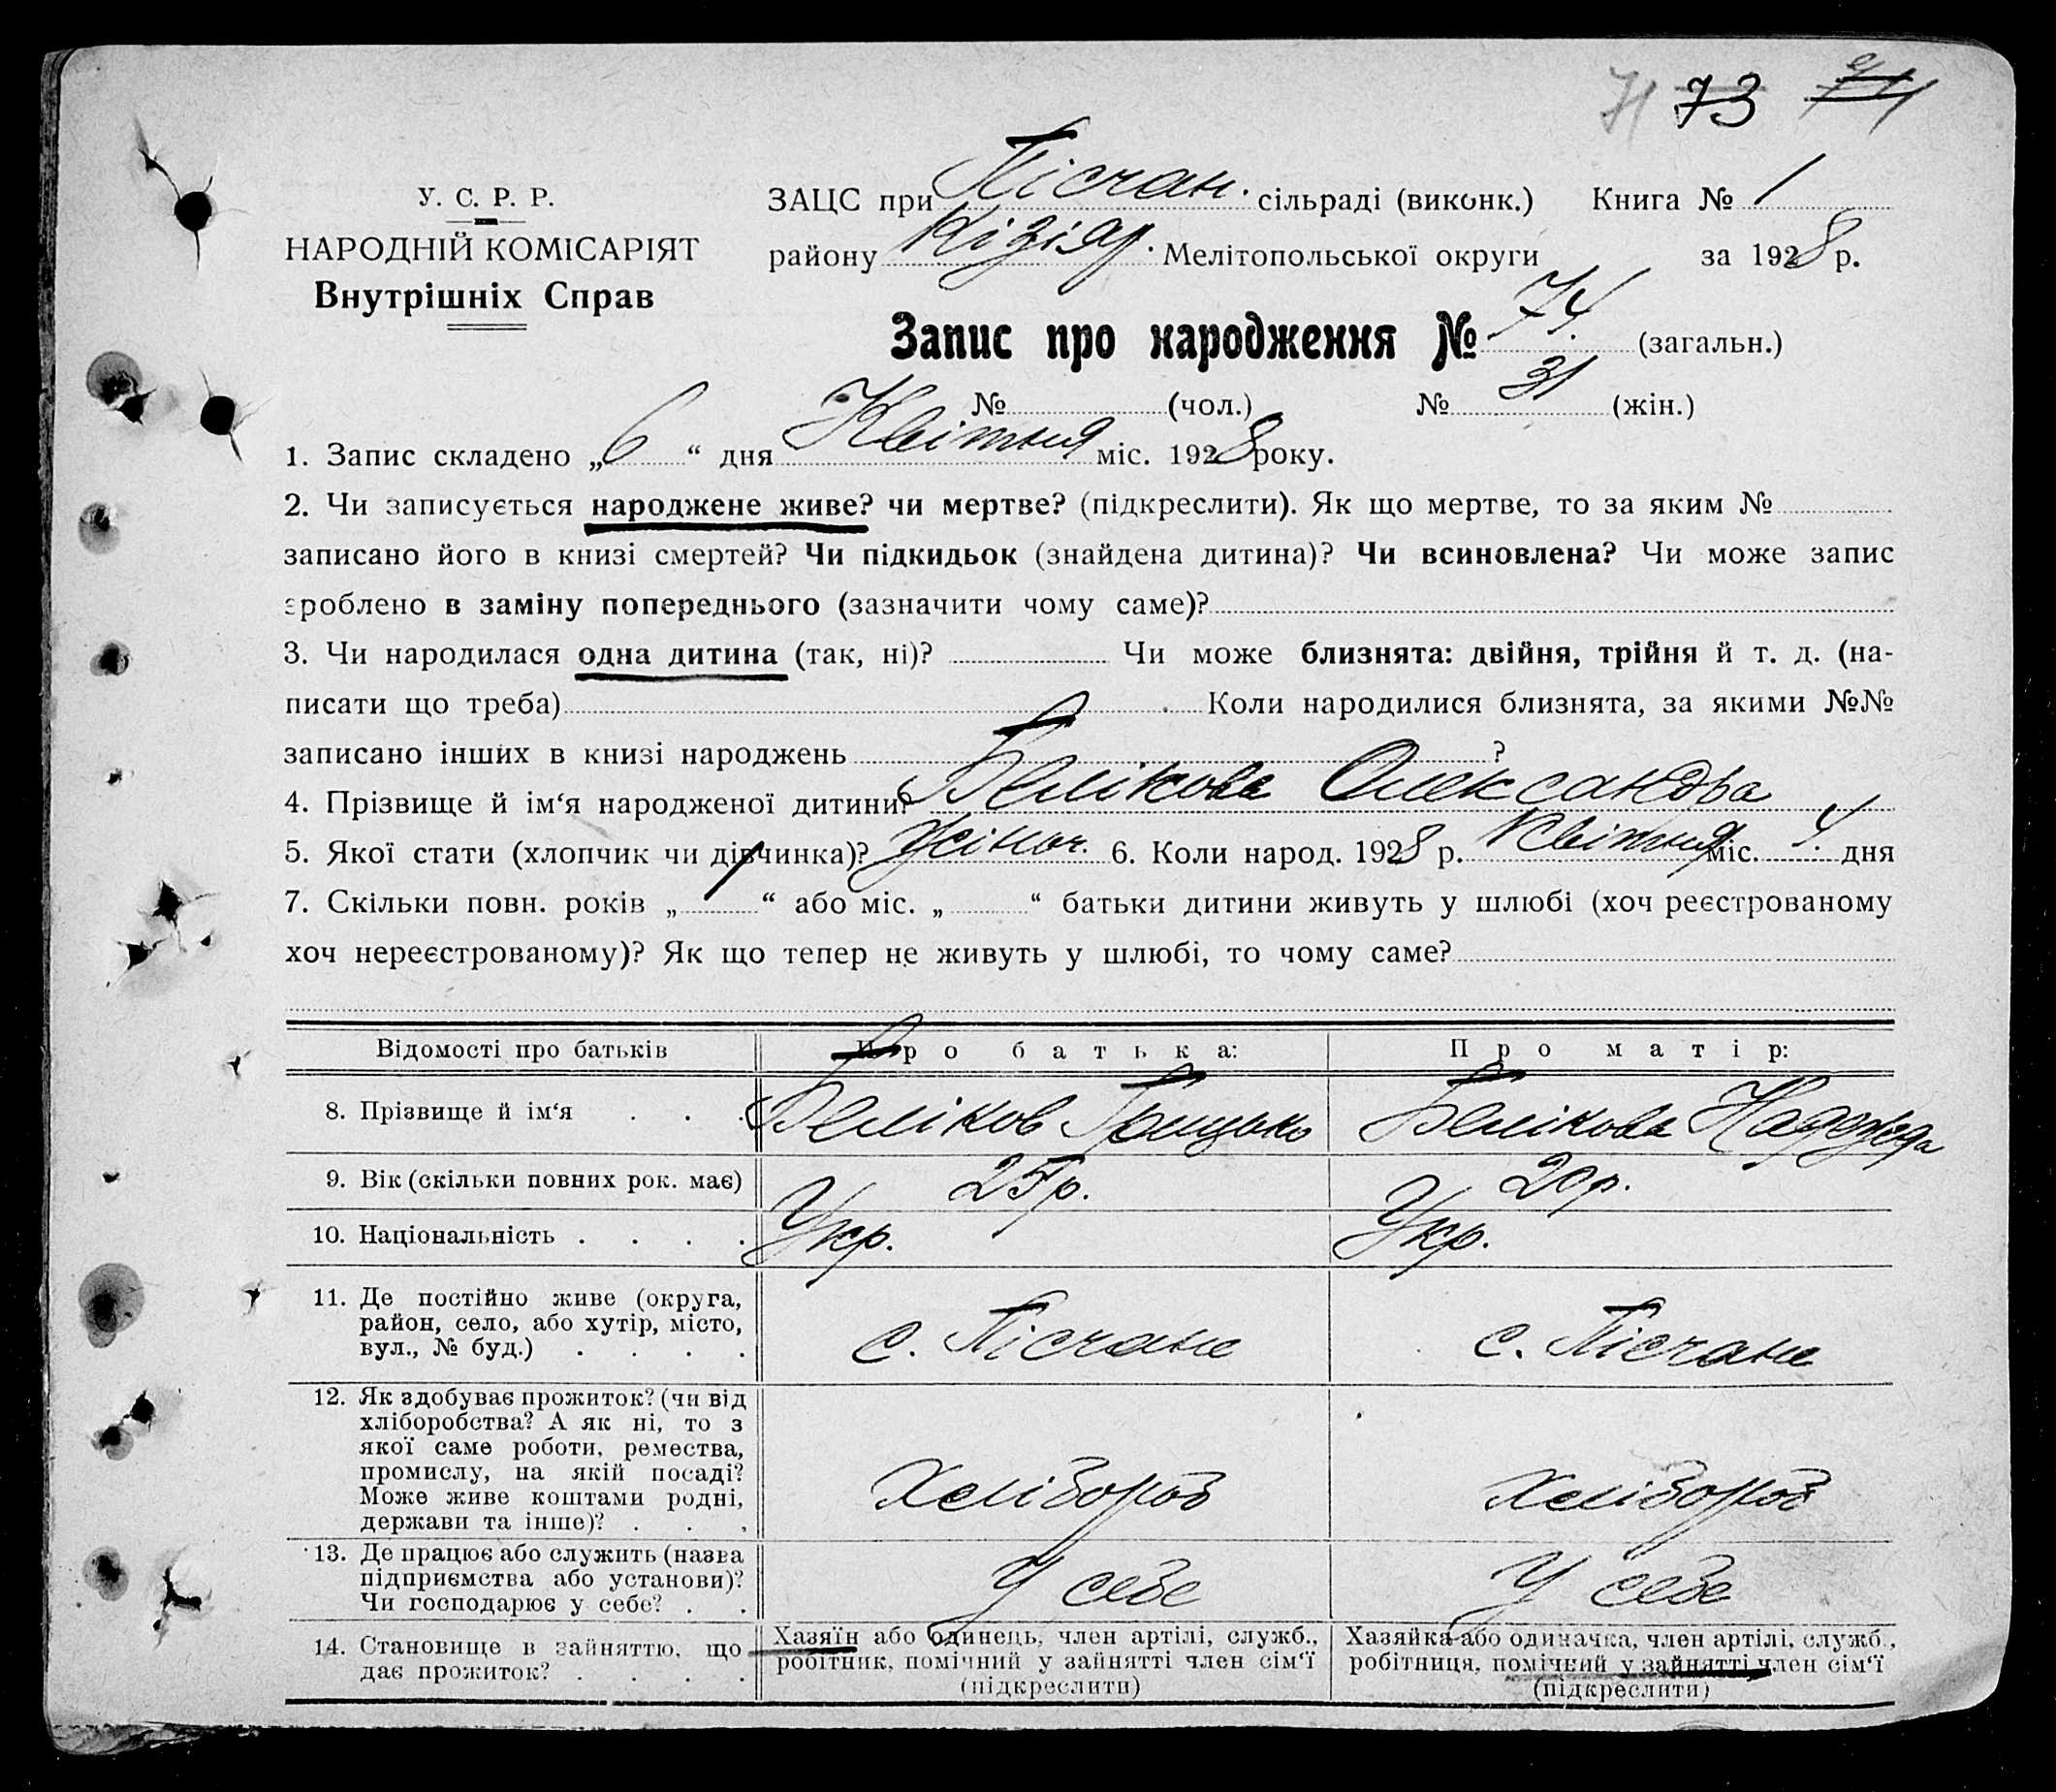 71 73 74
У. С. Р. Р.
НАРОДНІЙ КОМІСАРІЯТ
Внутрішніх Справ
ЗАЦС при Пісчан. сільраді (виконк.) Книга № 1
району Кізіяр. Мелітопольської округи за 1928 р.
Запис про народження № 74 (загальн.)
№ (чол.) № 31 (жін.)
1. Запис складено „6“ дня Квітня міс. 1928 року.
2. Чи записується народжене живе? чи мертве? (підкреслити). Як що мертве, то за яким №
записано його в книзі смертей? Чи підкидьок (знайдена дитина)? Чи всиновлена? Чи може запис
зроблено в заміну попереднього (зазначити чому саме)?
3. Чи народилася одна дитина (так, ні)? Чи може близнята: двійня, трійня й т. д. (на-
писати що треба) Коли народилися близнята, за якими №№
записано інших в книзі народжень ?
4. Прізвище й ім‘я народженої дитини? Белікова Олександра
5. Якої стати (хлопчик чи дівчинка)? жіноч. 6. Коли народ. 1928 р. Квітня міс. 4 дня
7. Скільки повн. років „ “ або міс. „ “ батьки дитини живуть у шлюбі (хоч реєстрованому
хоч нереєстрованому)? Як що тепер не живуть у шлюбі, то чому саме?
Відомості про батьків Про батька: Про матір:
8. Прізвище й ім‘я . . . Беліков Грицько Белікова Надежда
9. Вік (скільки повних рок. має) 25 р. 20 р.
10. Національність . . . . Укр. Укр.
11. Де постійно живе (округа,
район, село, або хутір, місто,
вул., № буд.) . . . .
с. Пісчане с. Пісчане
12. Як здобуває прожиток? (чи від
хліборобства? А як ні, то з
якої саме роботи, ремества,
промислу, на якій посаді?
Може живе коштами родні,
держави та інше)? . . .
Хлібороб Хлібороб
13. Де працює або служить (назва
підприємства або установи)?
Чи господарює у себе? . .
У себе У себе
14. Становище в зайняттю, що
дає прожиток? . . . .
Хазяїн або одинець, член артілі, служб.,
робітник, помічний у зайнятті член сім‘ї
(підкреслити)
Хазяйка або одиначка, член артілі, служб.,
робітниця, помічний у зайнятті член сім‘ї
(підкреслити)